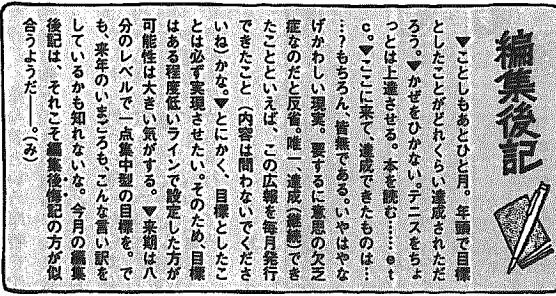 編集後記
▼ことしもあとひと月。年頭で目標
としたことがどれくらい達成されただ
ろう。▼かぜをひかない。テニスをちょ
っとは上達させる。本を読む……et
c。▼ここに来て、達成できたものは…
…？もちろん、皆無である。いやはやな
げかわしい現実。要するに意思の欠乏
症なのだと反省。唯一、達成（継続）でき
たことといえば、この広報を毎月発行
できたこと（内容は問わないでくださ
いね）かな。▼とにかく、目標としたこ
とは必ず実現させたい。そのため、目標
はある程度低いラインで設定した方が
可能性は大きい気がする。▼来期は八
分のレベルで一点集中型の目標を。で
も、来年のいまごろも、こんな言い訳を
しているかも知れないな。今月の編集
後記は、それこそ編集後悔記の方が似
合うようだ――。（み）